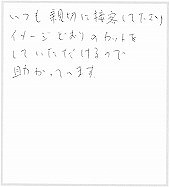 いつも親切に接客して下さり
イメージどおりのカットを
していただけるので
助かってます